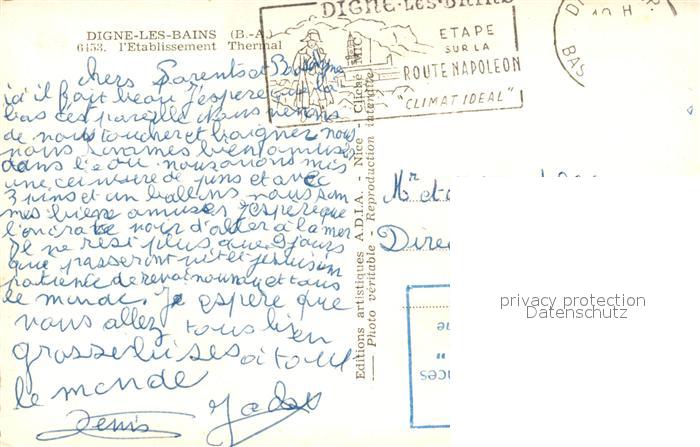 DIGNE-LES-BAINS (B.-A.)
6453. l'Etablissement Thermal
DIGNE-LES-BAINS
ETAPE
SUR LA
ROUTE NAPOLEON
"CLIMAT IDEAL"
10 H
BAS
chers Parents et
ici il fait beau j'espere que la
bas ces pareille nous venons
de nous toucher et baigner nous
nous sommes bien amuser
dans l'eau nous avions mis
une ceinture de pins et avec
3 pins et un ballons nous som
mes biens amuses j'espere que
l'on ira te voir d'alter a la mer
Il ne rest plus que 9 jours
que passeront vite et je suis im
patiente de revoir nounou et tous
le monde. Je espere que
vous allez tous bien
grosses luises a tout
le monde
Denis
Editions artistiques A.D.I.A. - Nice - Cliché MIC
Photo véritable - Reproduction interdite
Mr et
Direc
privacy protection
Datenschutz